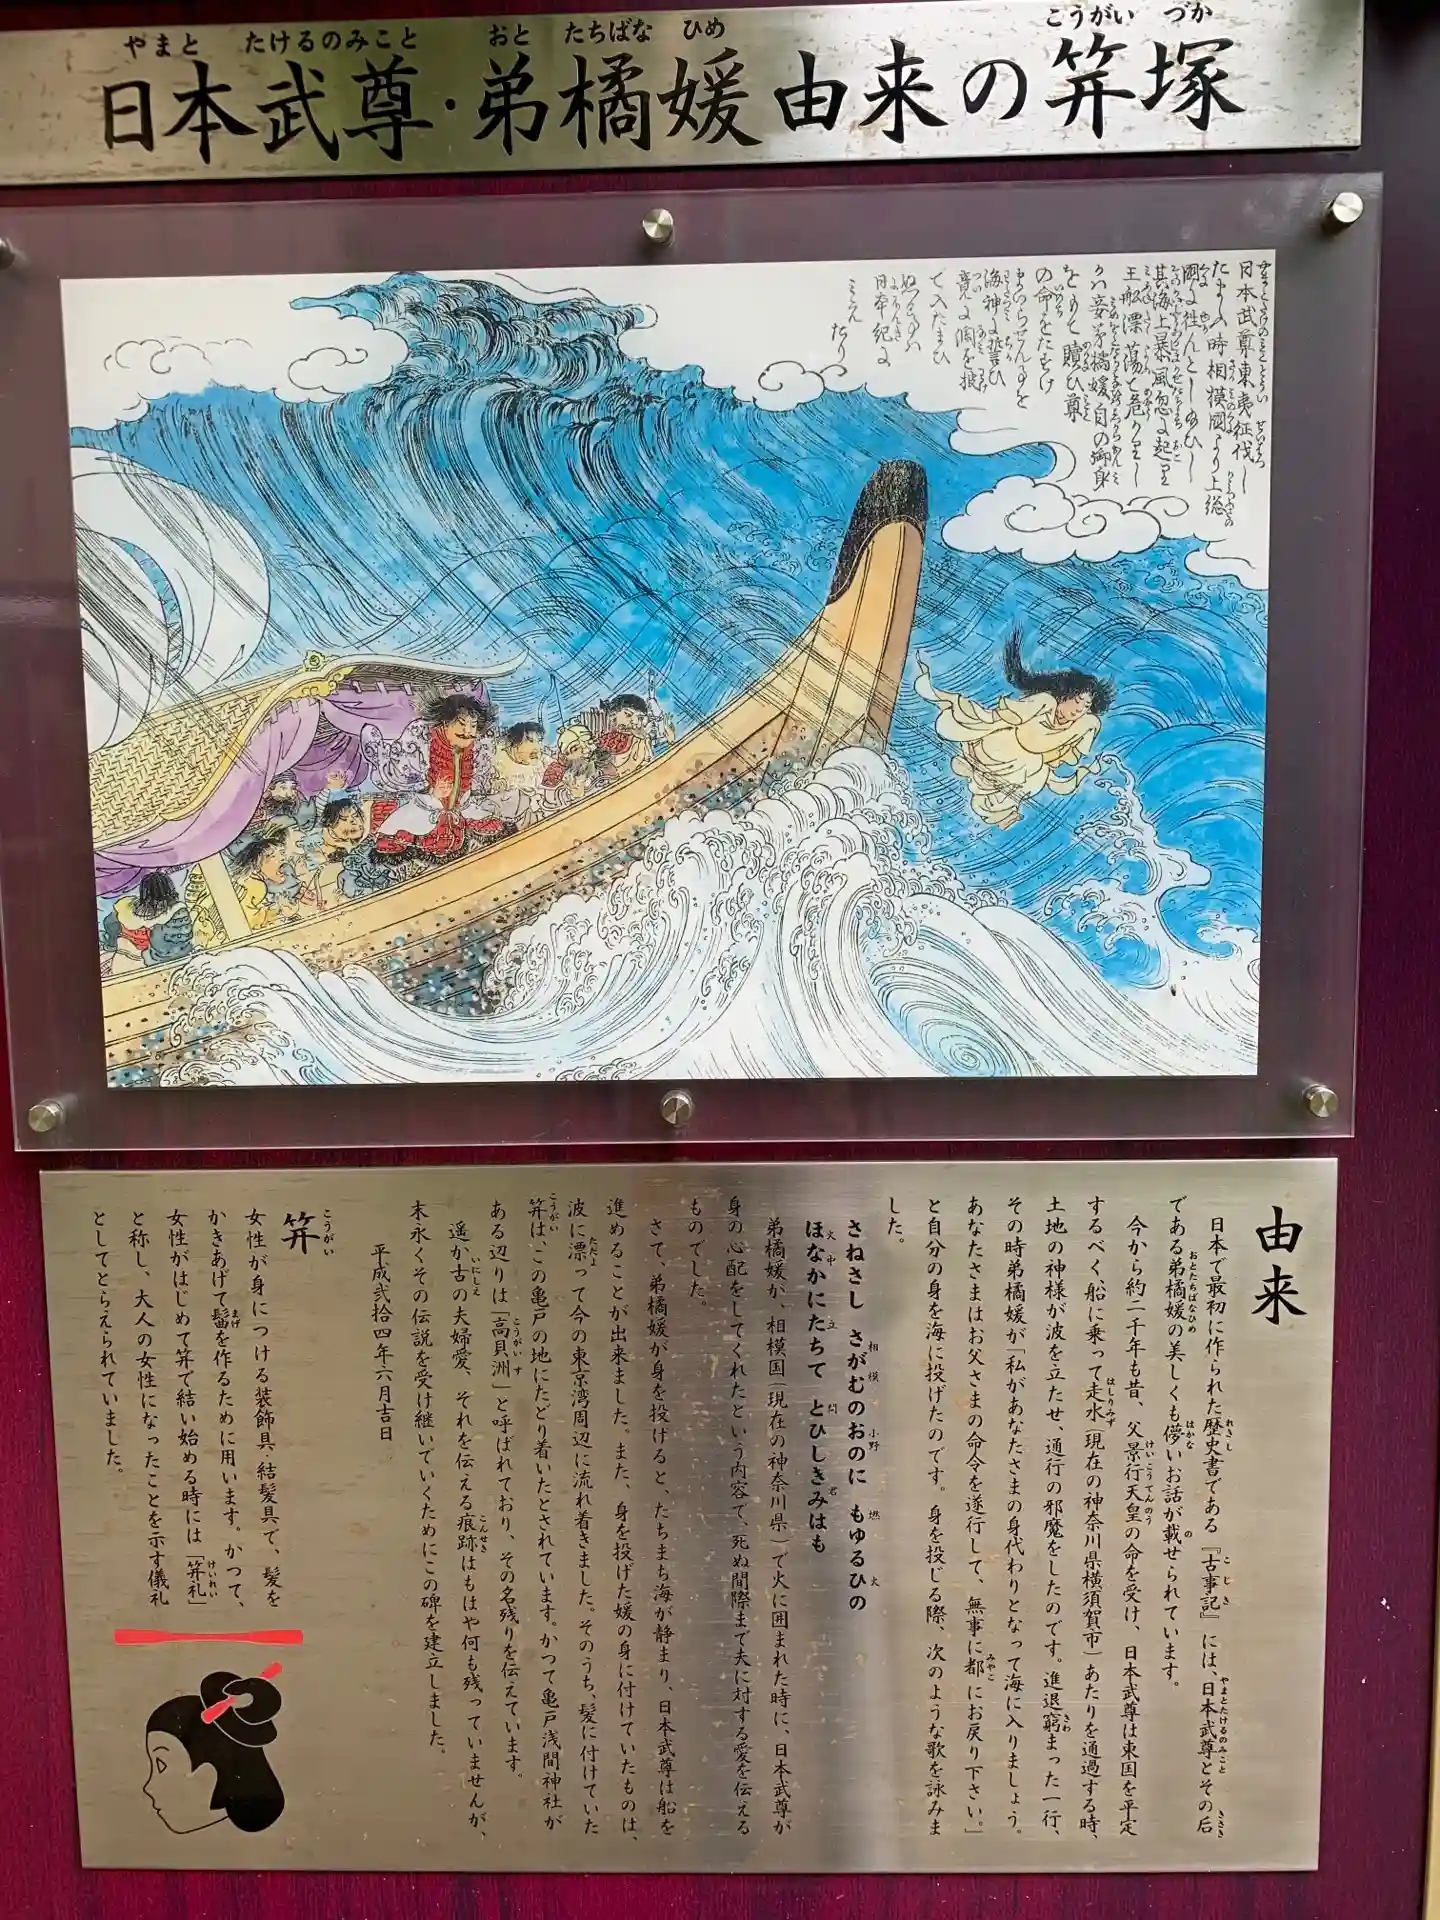 やまと たけるのみこと おと たちばな ひめ こうがい づか
日本武尊・弟橘媛由来の笄塚
日本武尊東夷征伐し
たまふ時相模國より上総
其海上暴風忽に起り
王船漂蕩て危かりし
の命をたすけ
海神に
日本紀に
みえたり
由来
日本で最初に作られた歴史書である『古事記』には、日本武尊とその后
である弟橘媛の美しくも儚いお話が載せられています。
今から約二千年も昔、父景行天皇の命を受け、日本武尊は東国を平定
するべく、船に乗って走水(現在の神奈川県横須賀市)あたりを通過する時、
土地の神様が波を立たせ、通行の邪魔をしたのです。進退窮まった一行、
その時弟橘媛が「私があなたさまの身代わりとなって海に入りましょう。
あなたさまはお父さまの命令を遂行して、無事に都にお戻り下さい。」
と自分の身を海に投げたのです。身を投じる際、次のような歌を詠みま
した。
さねさし さがむのおのに もゆるひの
ほなかにたちて とひしきみはも
弟橘媛が、相模国(現在の神奈川県)で火に囲まれた時に、日本武尊が
身の心配をしてくれたという内容で、死ぬ間際まで夫に対する愛を伝える
ものでした。
さて、弟橘媛が身を投げると、たちまち海が静まり、日本武尊は船を
進めることが出来ました。また、身を投げた媛の身に付けていたものは、
波に漂って今の東京湾周辺に流れ着きました。そのうち、髪に付けていた
笄は、この亀戸の地にたどり着いたとされています。かつて亀戸浅間神社が
ある辺りは「高貝洲」と呼ばれており、その名残りを伝えています。
遥か古の夫婦愛、それを伝える痕跡はもはや何も残っていませんが、
末永くその伝説を受け継いでいくためにこの碑を建立しました。
平成弐拾四年六月吉日
笄
こうがい
女性が身につける装飾具・結髪具で、髪を
かきあげて髷を作るために用います。かつて、
女性がはじめて笄で結い始める時には「笄礼」
と称し、大人の女性になったことを示す儀礼
としてとらえられていました。